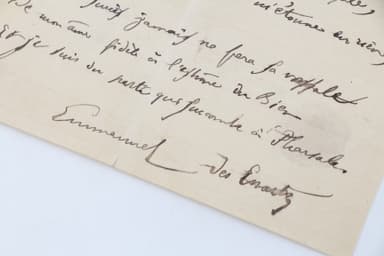 m'étonne en rien,
jamais ne fera sa vassale
De mon âme fidèle à l'estime du Bien
Et je suis du parti qui succombe à Pharsale.
Emmanuel des Essarts